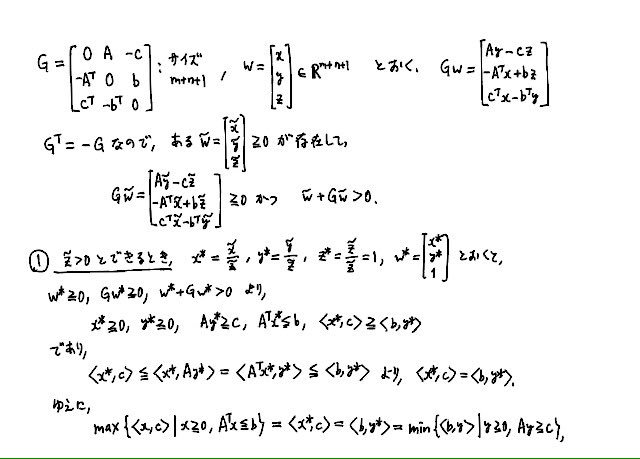 G = [0 A -c; -Aᵀ 0 b; cᵀ -bᵀ 0] : サイズ m+n+1 , w = [x; y; z] ∈ ℝᵐ⁺ⁿ⁺¹ とおく. Gw = [Ay-cz; -Aᵀx+bz; cᵀx-bᵀy]
Gᵀ = -G なので, ある w̃ = [x̃; ỹ; z̃] ≧0 が存在して,
Gw̃ = [Aỹ-cz̃; -Aᵀx̃+bz̃; cᵀx̃-bᵀỹ] ≧0 かつ w̃+Gw̃>0.
① z̃>0 とできるとき, x* = x̃/z̃, y* = ỹ/z̃, z* = z̃/z̃ = 1, w* = [x*; y*; 1] とおくと,
w*≧0, Gw*≧0, w*+Gw*>0 より,
x*≧0, y*≧0, Ay*≧c, Aᵀx*≦b, <x*,c>≧<b,y*>
であり,
<x*,c> ≦ <x*,Ay*> = <Aᵀx*,y*> ≦ <b,y*> より, <x*,c>=<b,y*>.
ゆえに,
max{<x,c>|x≧0, Aᵀx≦b} = <x*,c> = <b,y*> = min{<b,y>|y≧0, Ay≧c},